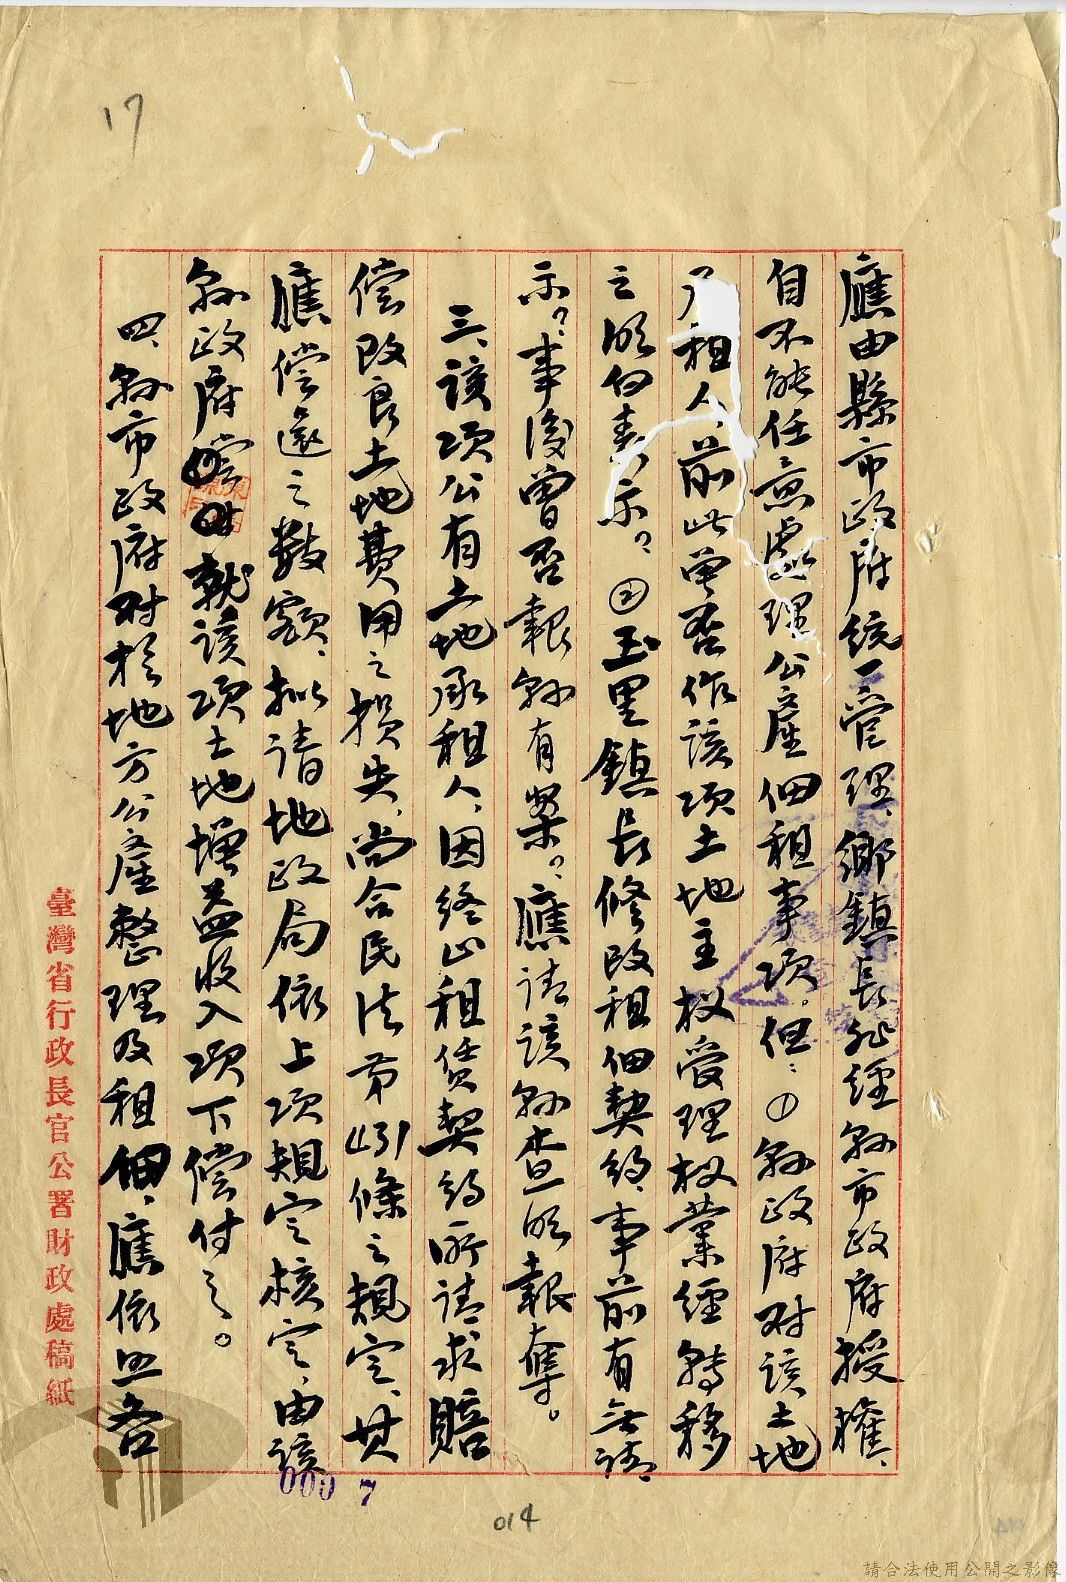 17
應由縣市政府統一管理、鄉鎮長非經縣市政府授權、
自不能任意處理公産佃租事項。但：①縣政府对該土地
租人、前此曾否作該項土地主权管理权業經轉移
之明白表示？②玉里鎮長修改租佃契約、事前有無請
示？事後曾否報縣有案？應請該縣查明報奪。
三、該項公有土地承租人、因終止租赁契約所請求賠
偿改良土地費用之損失、尚合民法第431條之規定、其
應偿還之數额、拟请地政局依上項規定核定、由該
縣政府就該項土地增益收入項下偿付之。
四、縣市政府对於地方公産整理及租佃、應依照各
臺灣省行政長官公署財政處稿紙
000 7
014
請合法使用公開之影像